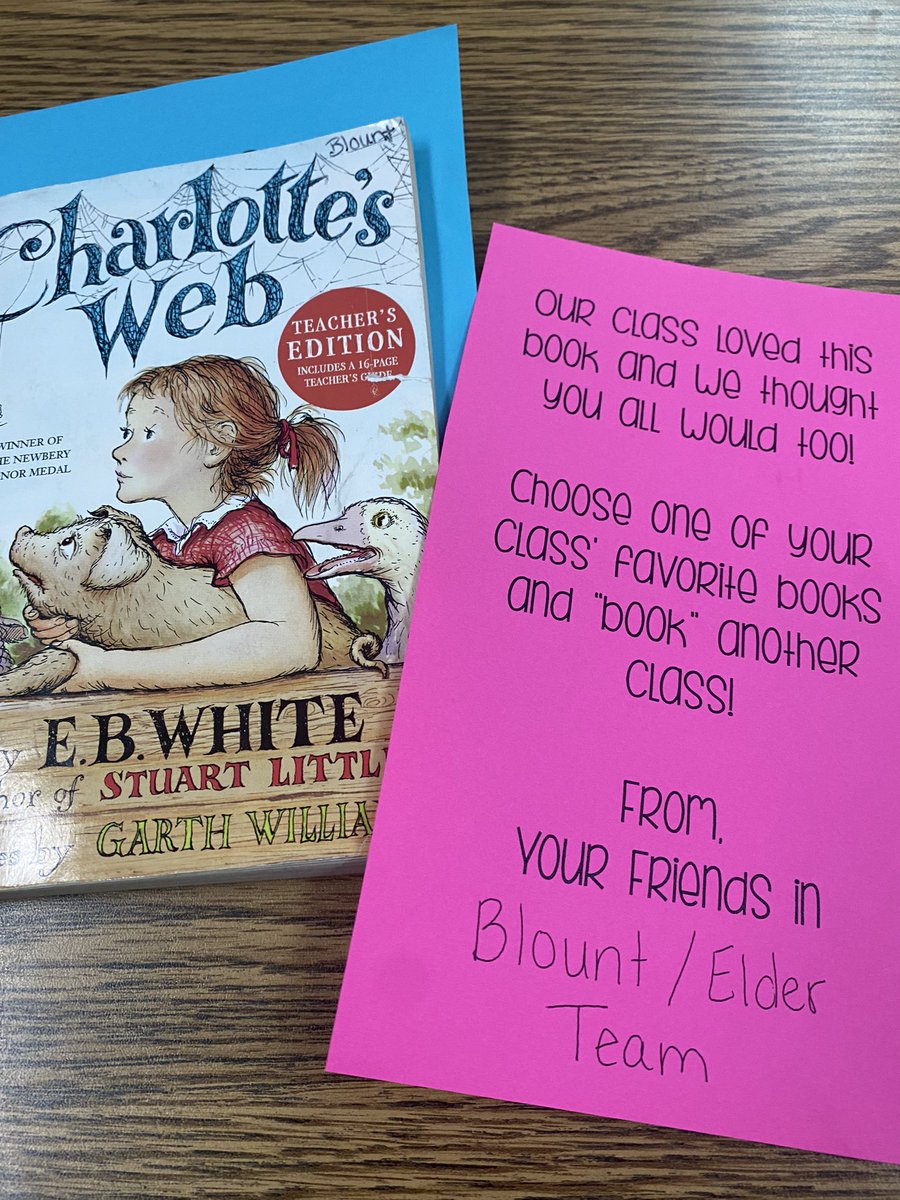 Blount
Charlotte's
Web
TEACHER'S
EDITION
INCLUDES A 16-PAGE
TEACHER'S GUIDE
WINNER OF
NEWBERY
MEDAL
E.B.WHITE
of STUART LITTL
by GARTH WILLIA
Our class loved this
book and we thought
you all would too!
Choose one of your
class' favorite books
and "book" another
class!
From,
Your friends in
Blount / Elder
Team